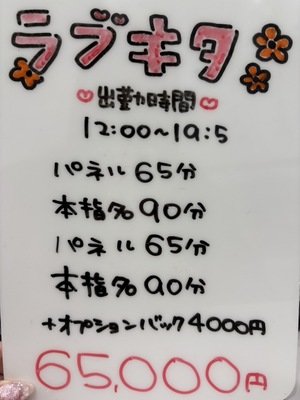 ラブキタ
出勤時間
12:00〜19:5
パネル65分
本指名90分
パネル65分
本指名90分
+オプションバック4000円
65,000円